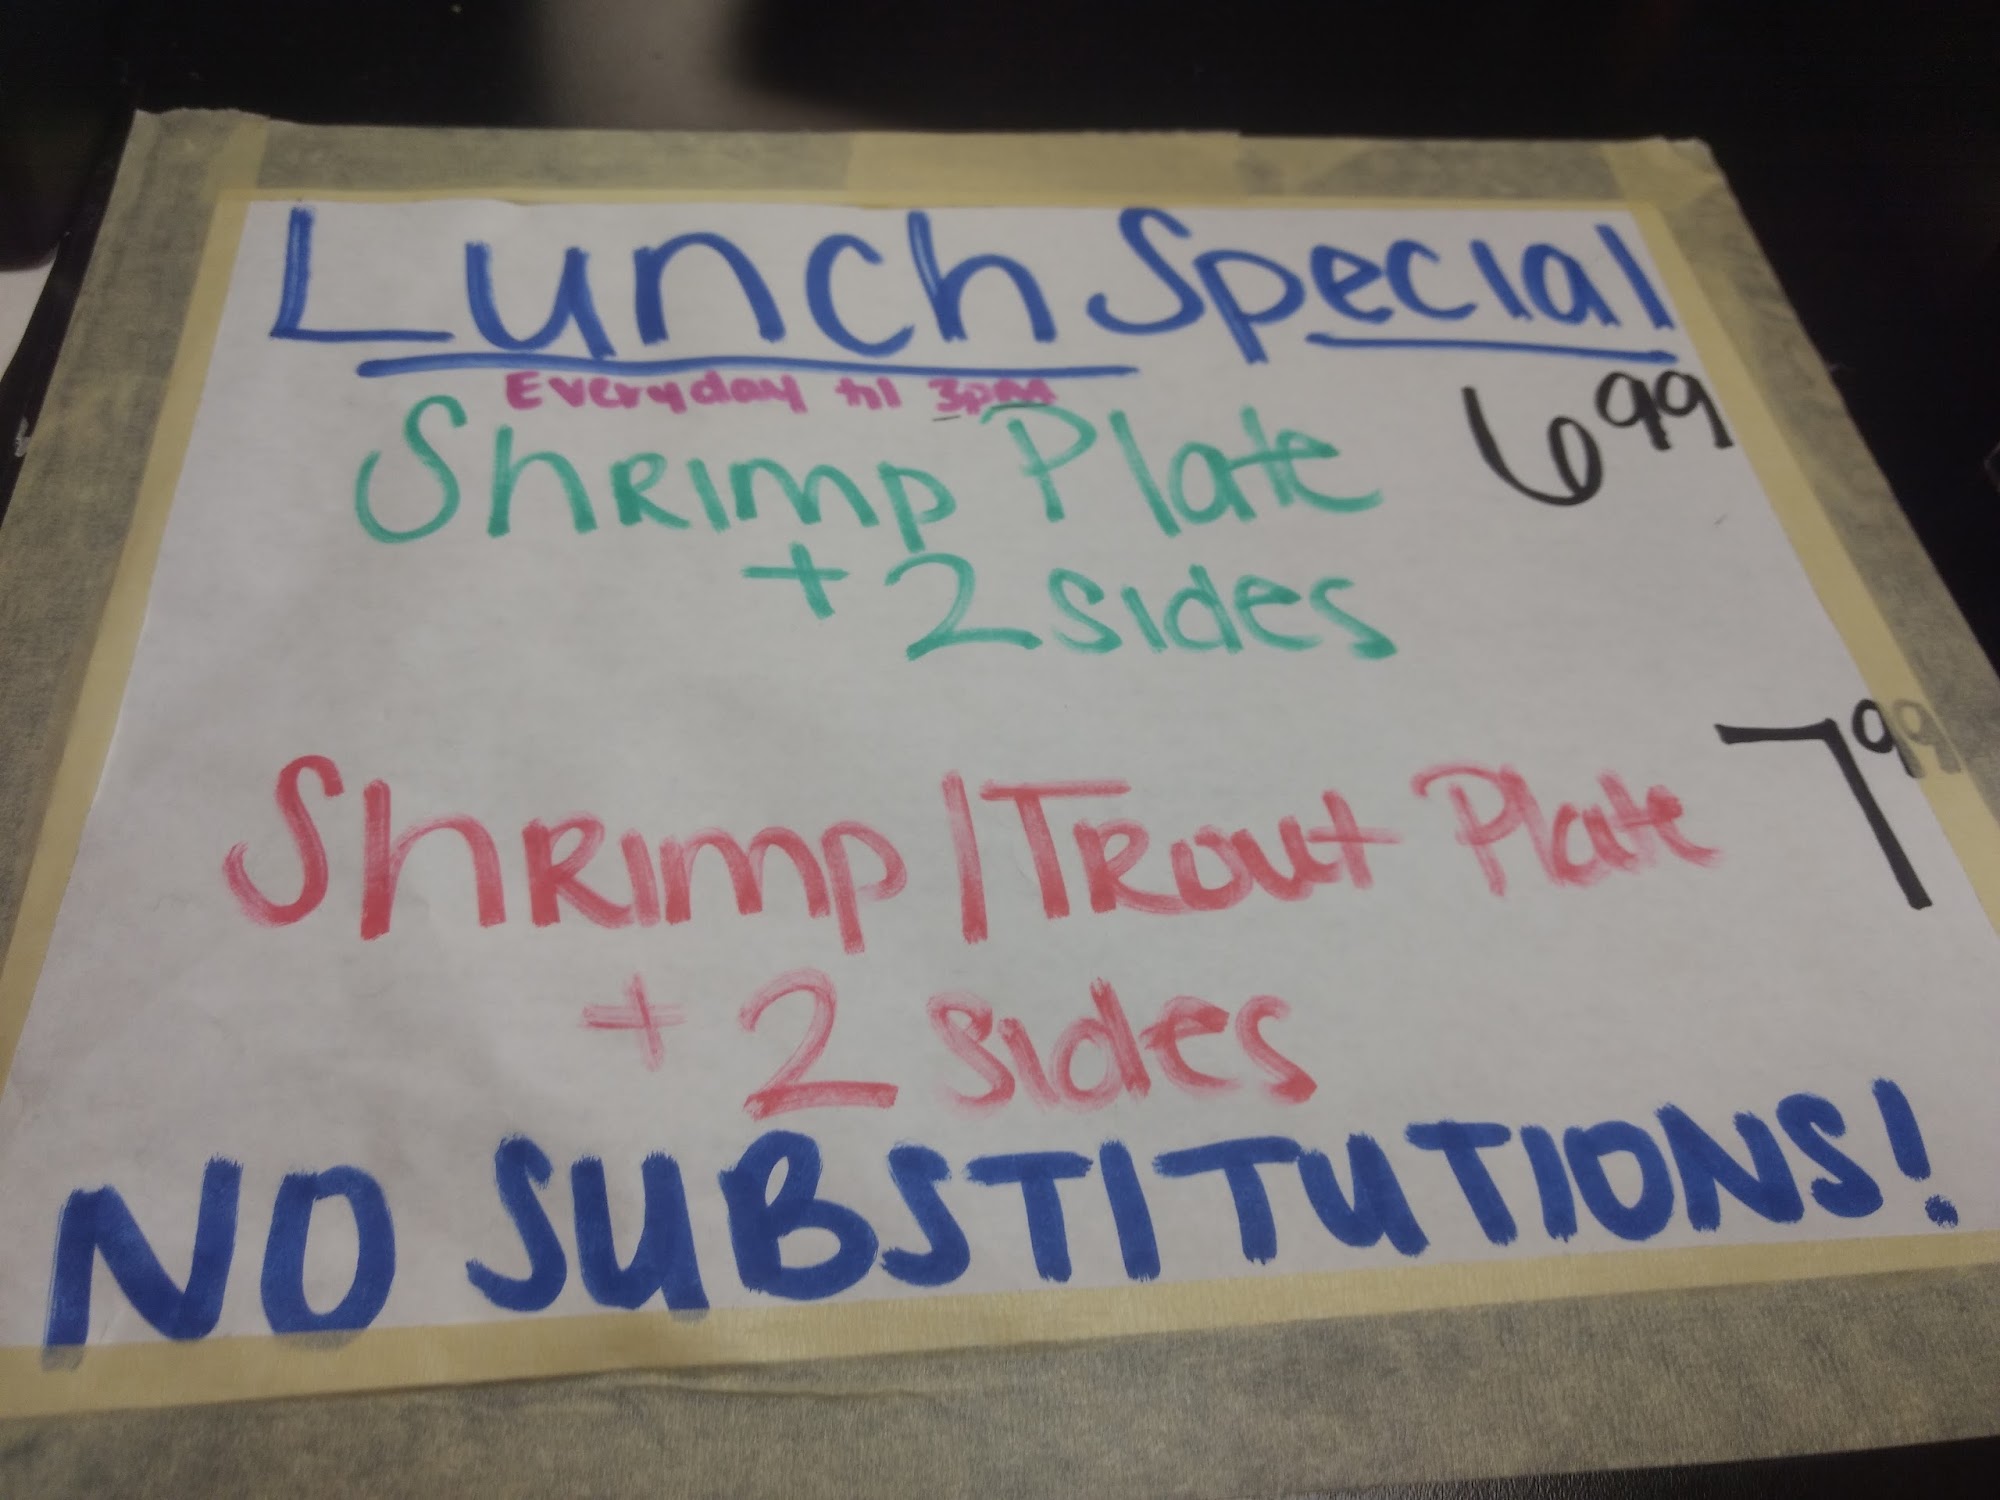 Lunch Special
Everyday til 3pm
Shrimp Plate 6.99
+ 2 sides
Shrimp/Trout Plate 7.99
+ 2 sides
NO SUBSTITUTIONS!